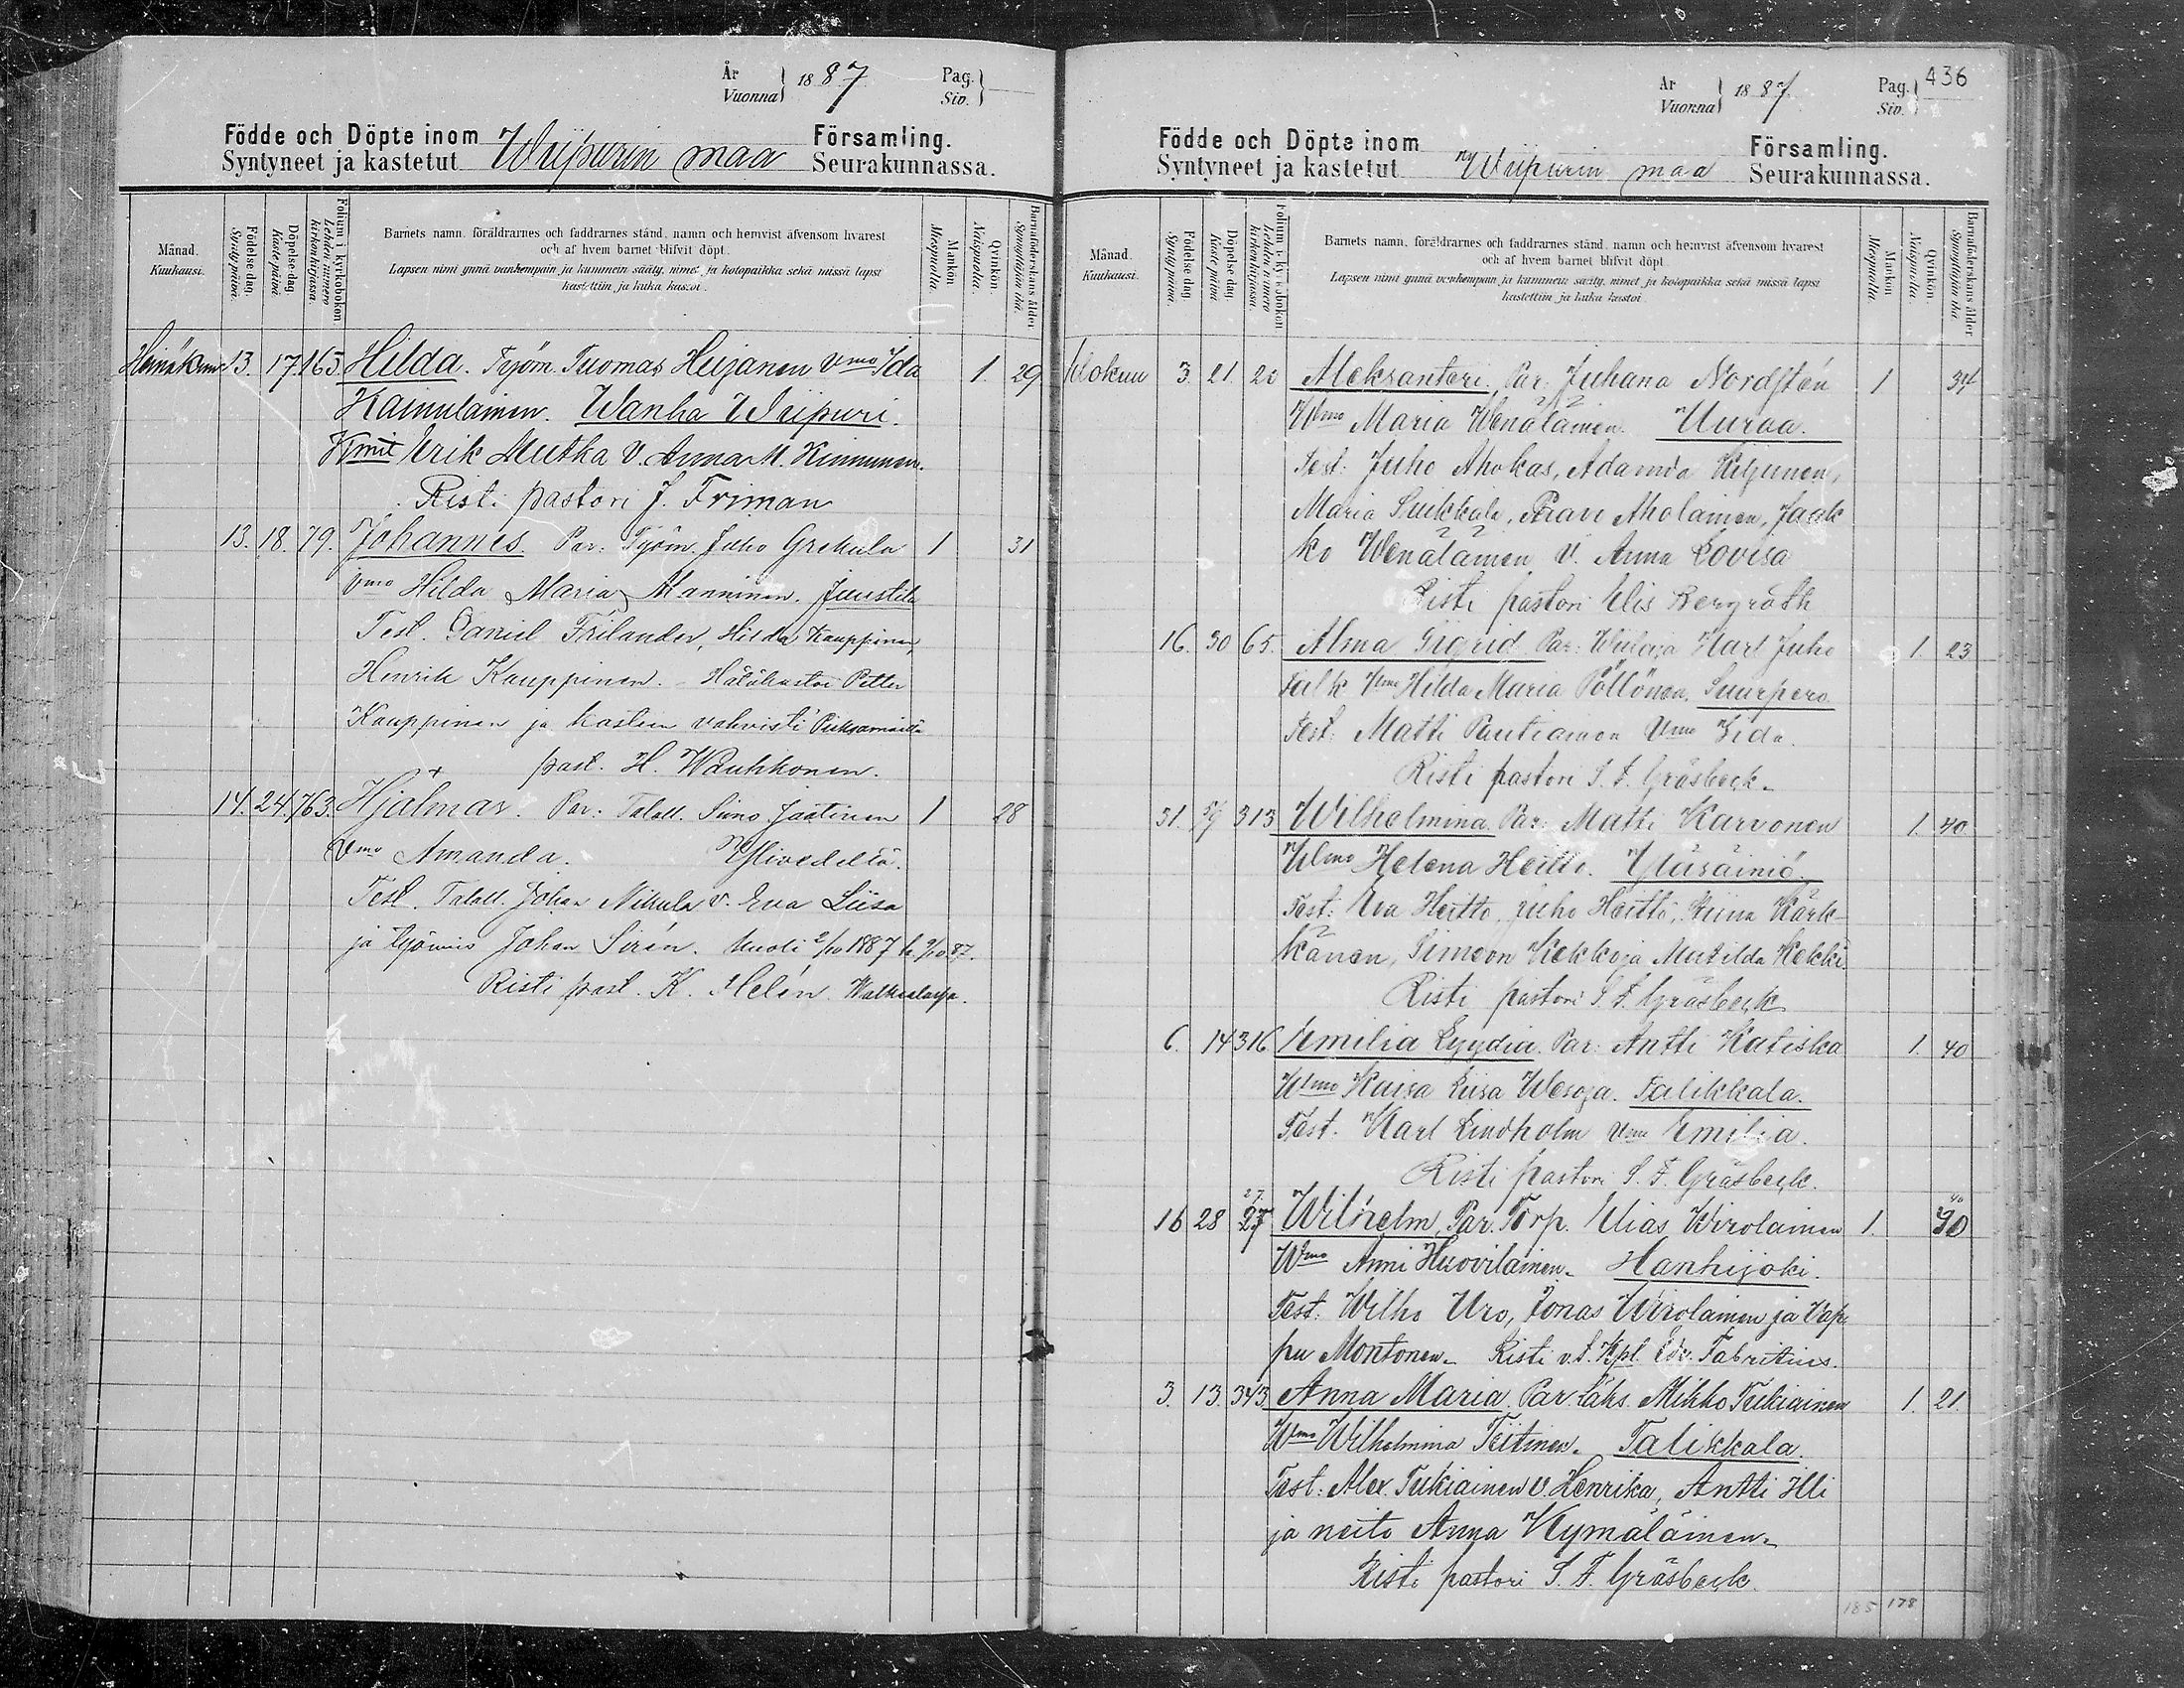 År
Vuonna 1887
Pag.
Siv.
Födde och Döpte inom
Syntyneet ja kastetut Wiipurin maa Församling.
Seurakunnassa.
Månad.
Kuukausi.
Födelse dag.
Synty päivä.
Döpelse dag.
Kaste päivä.
Folium i kyrkoboken.
Lehden numero kirkonkirjassa.
Barnets namn, föräldrarnes och faddrarnes stånd, namn och hemvist äfvensom hvarest
och af hvem barnet blifvit döpt.
Lapsen nimi ynnä vanhempain ja kummein sääty, nimet ja kotopaikka sekä missä lapsi
kastettiin ja kuka kastoi.
Mankön.
Miespuolia.
Qvinkön.
Naispuolia.
Barnaföderskans ålder.
Synnyttäjän ikä.
Heinäkuu 13. 17. 163. Hilda. Työm. Tuomas Hujanen Vmo Ida 1. 29
Kainulainen. Wanha Wiipuri.
Kmit Erik Mutka V. Anna M. Kinnunen.
Rist. pastori J. Friman
13. 18. 79. Johannes. Par: Työm. Juho Grekula 1 31
Vmo Hilda Maria Manninen. Juustila
Test. Daniel Frilander, Hilda Kauppinen,
Henrik Kauppinen. Hätäkastoi Petter
Kauppinen ja kasteen vahvisti Pieksämäellä
past. H. Waukkonen.
14. 24. 763. Hjalmar. Par: Talall. Simo Jäätinen 1 28
Vmo Amanda. Ylivedeltä.
Test. Talall. Johan Nikula v. Eva Liisa
ja työmies Johan Sirén. kuoli 2/10 1887 h. 9/10 87.
Risti past. K. Helén Walkealassa.
År
Vuonna 1887
Pag.
Siv. 436
Födde och Döpte inom
Syntyneet ja kastetut Wiipurin maa Församling.
Seurakunnassa.
Månad.
Kuukausi.
Födelse dag.
Synty päivä.
Döpelse dag.
Kaste päivä.
Folium i kyrkoboken.
Lehden numero kirkonkirjassa.
Barnets namn, föräldrarnes och faddrarnes stånd, namn och hemvist äfvensom hvarest
och af hvem barnet blifvit döpt.
Lapsen nimi ynnä vanhempain ja kummein sääty, nimet ja kotopaikka sekä missä lapsi
kastettiin ja kuka kastoi.
Mankön.
Miespuolia.
Qvinkön.
Naispuolia.
Barnaföderskans ålder.
Synnyttäjän ikä.
Elokuu 3. 21. 20 Aleksanteri. Par: Juhana Nordstén 1 34
Vmo Maria Wenäläinen. Uuraa.
Test: Juho Ahokas, Adamia Kiljunen,
Maria Suikkala, Aholainen, Jaak
ko Wenäläinen V. Anna Lovisa
Risti pastori Elis Bergroth
16. 30 65. Alma Sigrid Par: Karl Juho 1. 23
Falk Vmo Hilda Maria Pöllönen. Suurpero
Test: Matti Pautiainen Vmo Iida.
Risti pastori S. F. Gräsbeck.
31. 5/9 313 Wilhelmina. Par: Matti Karvonen 1. 40
Vmo Helena Heitto. Yläsäiniö.
Test: Eva Heitto, Juho Heitto, Stiina Kärk-
känen, Simeon Kekki ja Matilda Kekki
Risti pastori S. F. Gräsbeck
6. 14 316 Emilia Lyydia. Par: Antti Katiska 1. 40
Vmo Kaisa Liisa Wesoja. Talikkala.
Test. Karl Lindholm Vmo Emilia.
Risti pastori S. F. Gräsbeck.
16 28 27 Wilhelm. Par. Torp. Elias Wirolainen 1. 40
Wmo Anni Huovilainen. Hanhijoki.
Test: Wilho Uro, Jonas Wirolainen ja Vap
pu Montonen. Risti v.t. Kpl. Edv. Fabritius.
3. 13. 343 Anna Maria. Par. Läks. Mikko Tukiainen 1. 21.
Wmo Wilhelmina Teitinen. Talikkala.
Test: Alex. Tukiainen V. Henrika, Antti Illi
ja neito Anna Kymäläinen.
Risti pastori S. F. Gräsbeck.
185 178